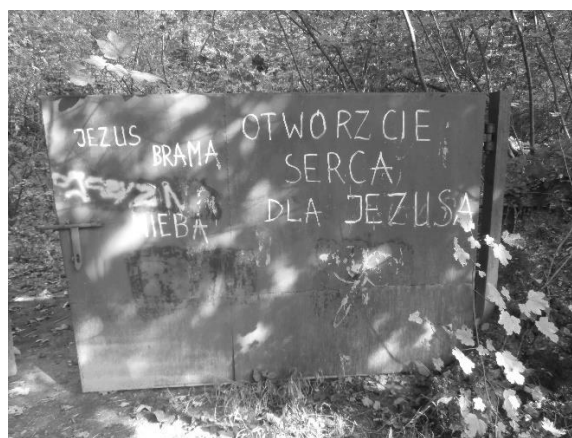 JEZUS
BRAMA
NIEBA
OTWÓRZCIE
SERCA
DLA JEZUSA